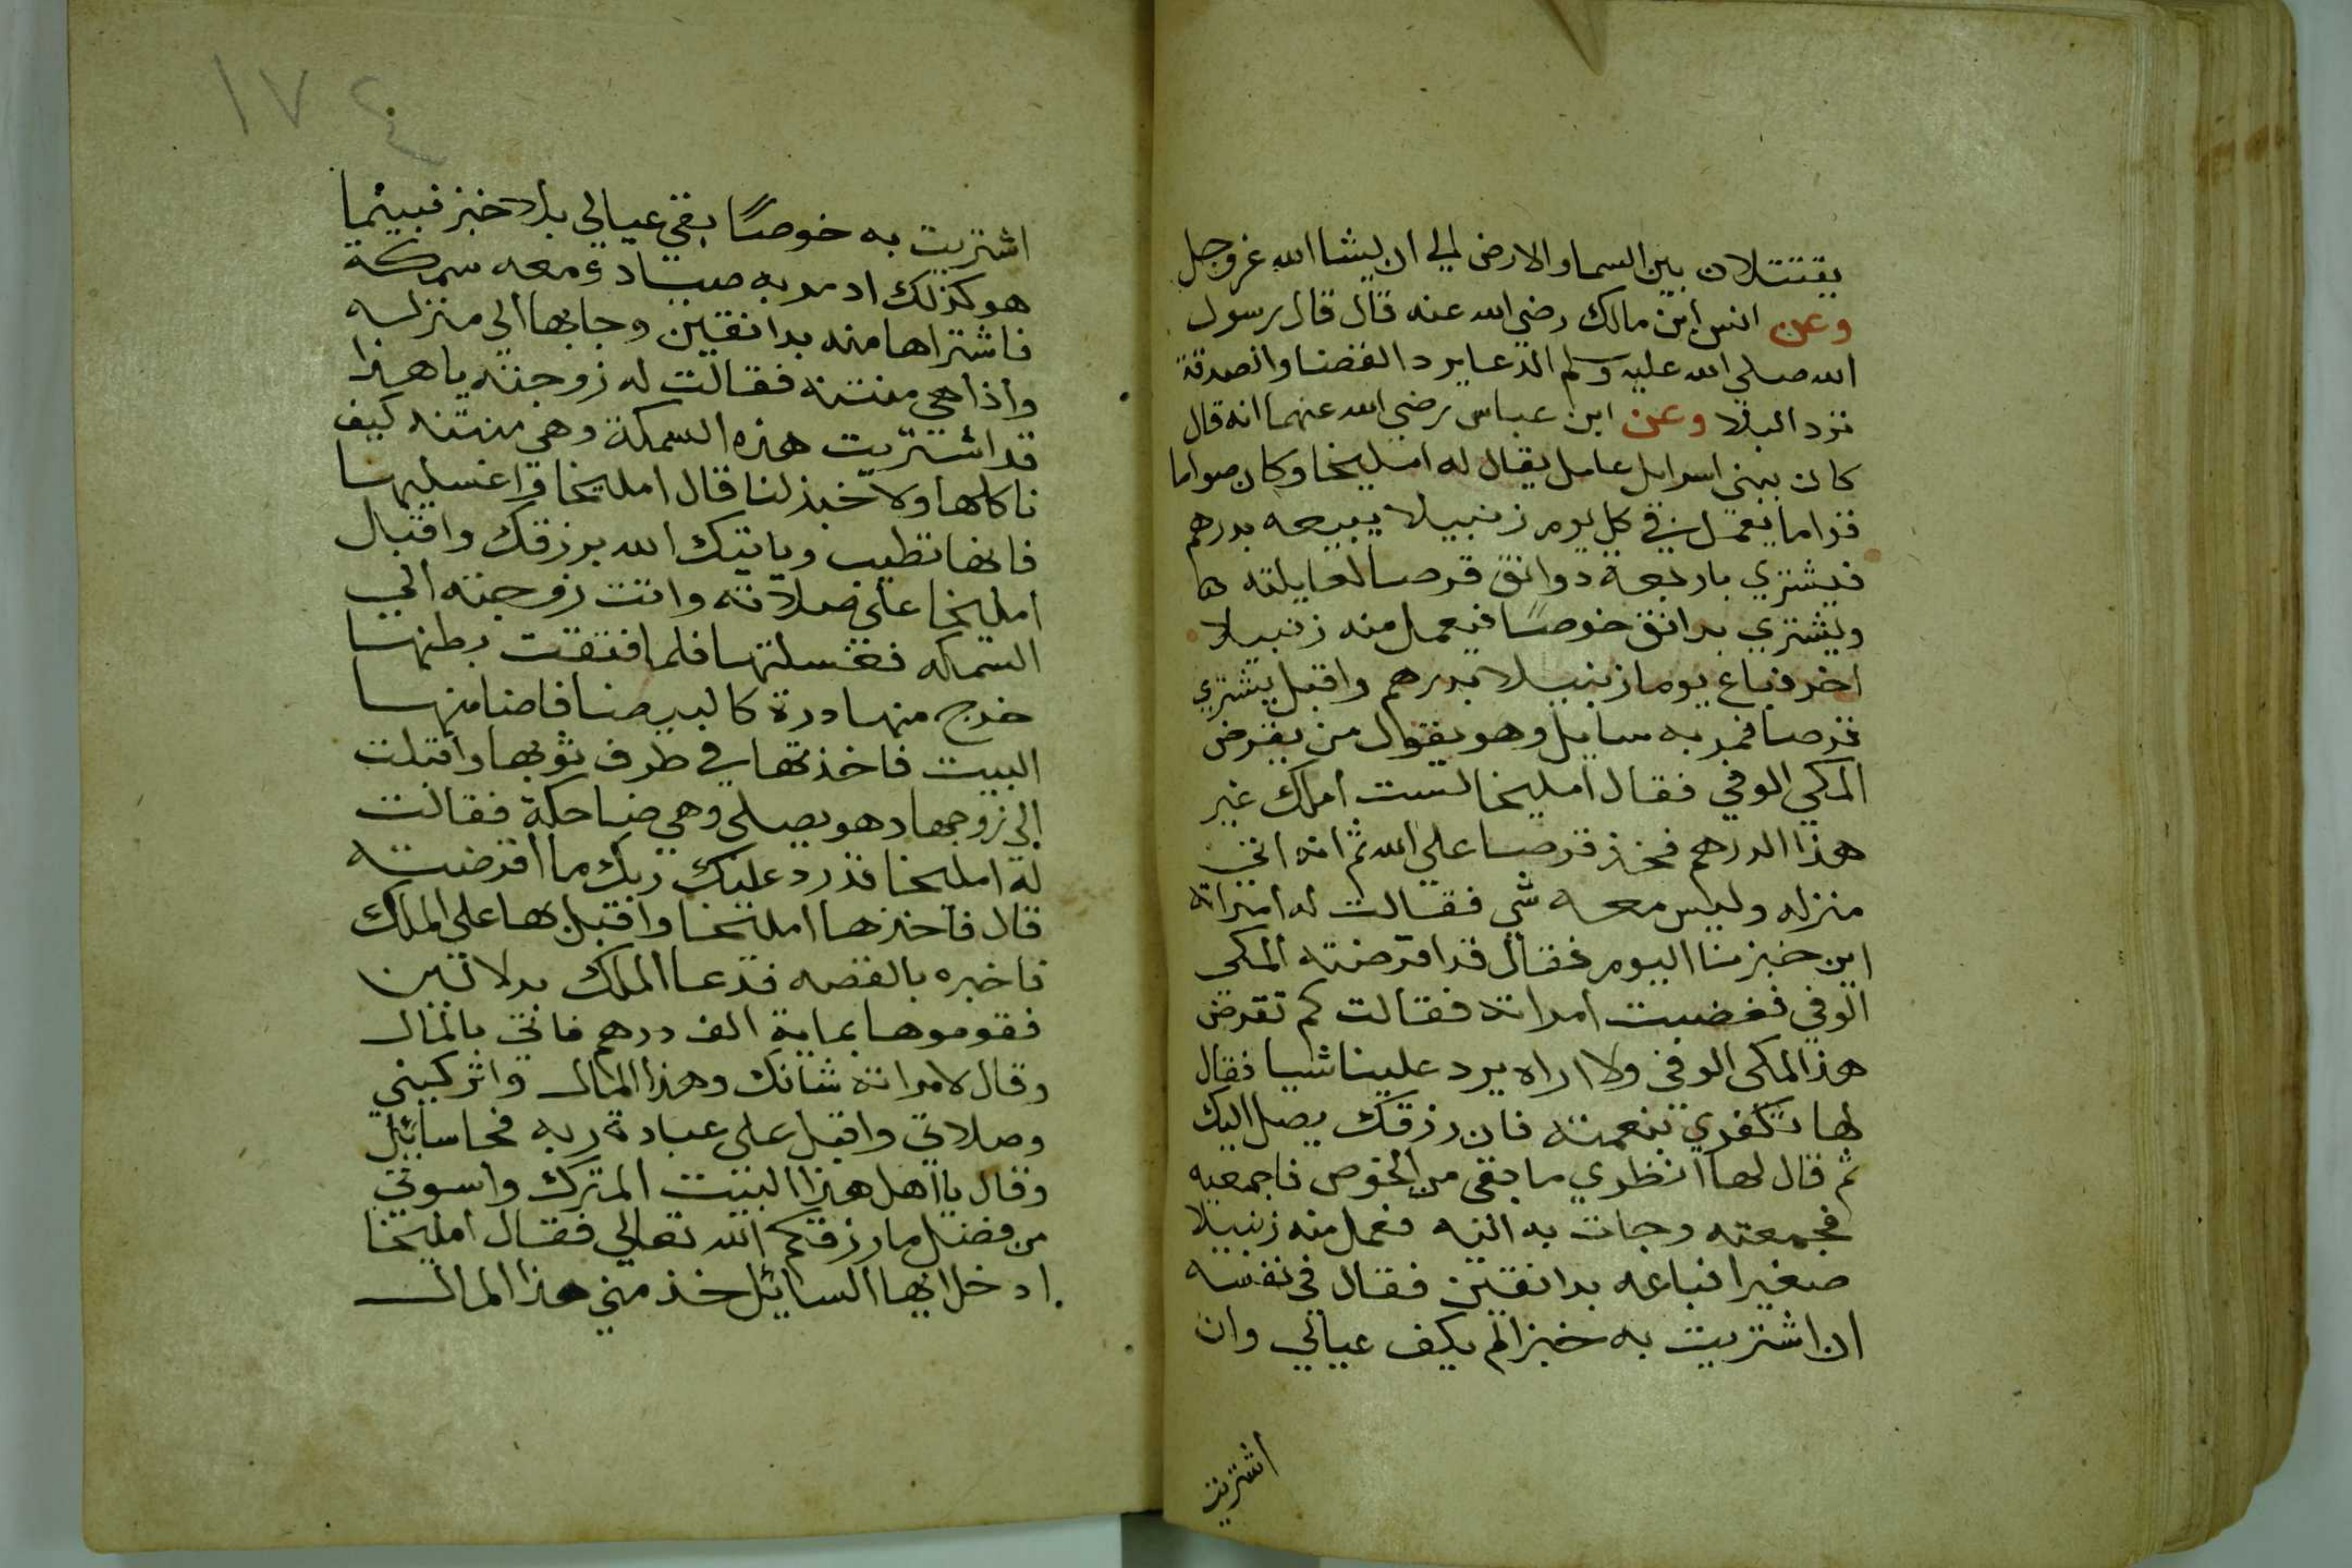 يقتتلان بين السما والارض الي ان يشا الله عز وجل
وعن انس ابن مالك رضي الله عنه قال قال رسول
الله صلي الله عليه وسلم الدعا يرد القضا والصدقة
ترد البلا وعن ابن عباس رضي الله عنهما انه قال
كان ببني اسرايل عامل يقال له امليخا وكان صواما
قواما يعمل في كل يوم زنبيلا يبيعه بدرهم
فيشتري باربعة دوانق قرصا لعايلته
ويشتري بدانق خوصًا فيعمل منه زنبيلا
اخر فباع يوما زنبيلا بدرهم واقبل يشتري
قرصا فمر به سايل وهو يقول من يقرض
المكي الوفي فقال امليخا لست املك غير
هذا الدرهم فخذ قرصا علي الله ثم انه اتي
منزله وليس معه شي فقالت له امراته
اين خبزنا اليوم فقال قد اقرضته المكي
الوفي فغضبت امراته فقالت كم تقرض
هذا المكي الوفي ولا اراه يرد علينا شيا فقال
لها تكفري بنعمته فان رزقك يصل اليك
ثم قال لها انظري ما بقي من الخوص فاجمعيه
فجمعته وجات به اليه فعمل منه زنبيلا
صغيرا فباعه بدانقين فقال في نفسه
ان اشتريت به خبزا لم يكف عيالي وان
اشتريت
١٧٤
اشتريت به خوصًا بقي عيالي بلا خبز فبينما
هو كذلك اد مر به صياد ومعه سمكة
فاشتراها منه بدانقين وجابها الي منزله
واذا هي منتنه فقالت له زوجته يا هذا
قد اشتريت هذه السمكة وهي منتنه كيف
ناكلها ولا خبز لنا قال امليخا واغسليها
فانها تطيب وياتيك الله برزقك واقبال
امليخا علي صلاته واتت زوجته الي
السمكه فغسلتها فلما فتقت بطنها
خرج منها درة كالبيضا فاضا منها
البيت فاخذتها في طرف ثوبها واقبلت
الي زوجها وهو يصلي وهي ضاحكة فقالت
له امليخا قد رد عليك ربك ما اقرضته
قال فاخذها امليخا واقبل بها علي الملك
فاخبره بالقصه فدعا الملك بدلالين
فقوموها بماية الف درهم فاتي بالمال
وقال لامراته شانك وهذا المال واتركيني
وصلاتي واقبل علي عبادة ربه فجا سائل
وقال يا اهل هذا البيت المترك واسوني
من فضل ما رزقكم الله تعالي فقال امليخا
ادخل ايها السائل خذ مني هذا المال